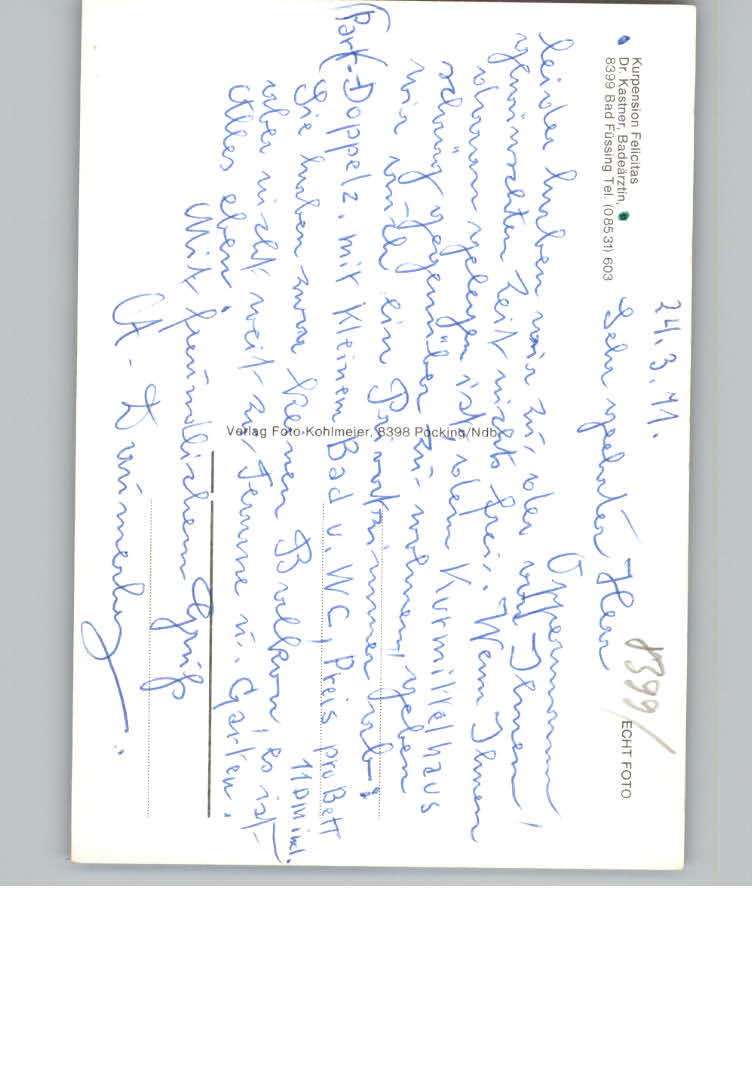 Kurpension Felicitas
Dr. Kastner, Badeärztin,
8399 Bad Füssing Tel. (08531) 603
8399/
ECHT FOTO
24.3.71.
Sehr geehrter Herr
Oppermann!
leider haben wir zu der von Ihnen
gewünschten Zeit nichts frei. Wenn Ihnen
daran gelegen ist, dem Kurmittelhaus
schräg gegenüber zu wohnen, geben
wir auch ein Privatzimmer ab:
(Park-Doppelz. mit kleinem Bad u. WC, Preis pro Bett
11 DM inkl.
Sie haben zwar keinen Balkon, es ist
aber nicht weit zur Terrasse u. Garten.
Alles eben!
Mit freundlichem Gruß
Verlag Foto-Kohlmeier, 8398 Pocking/Ndb.